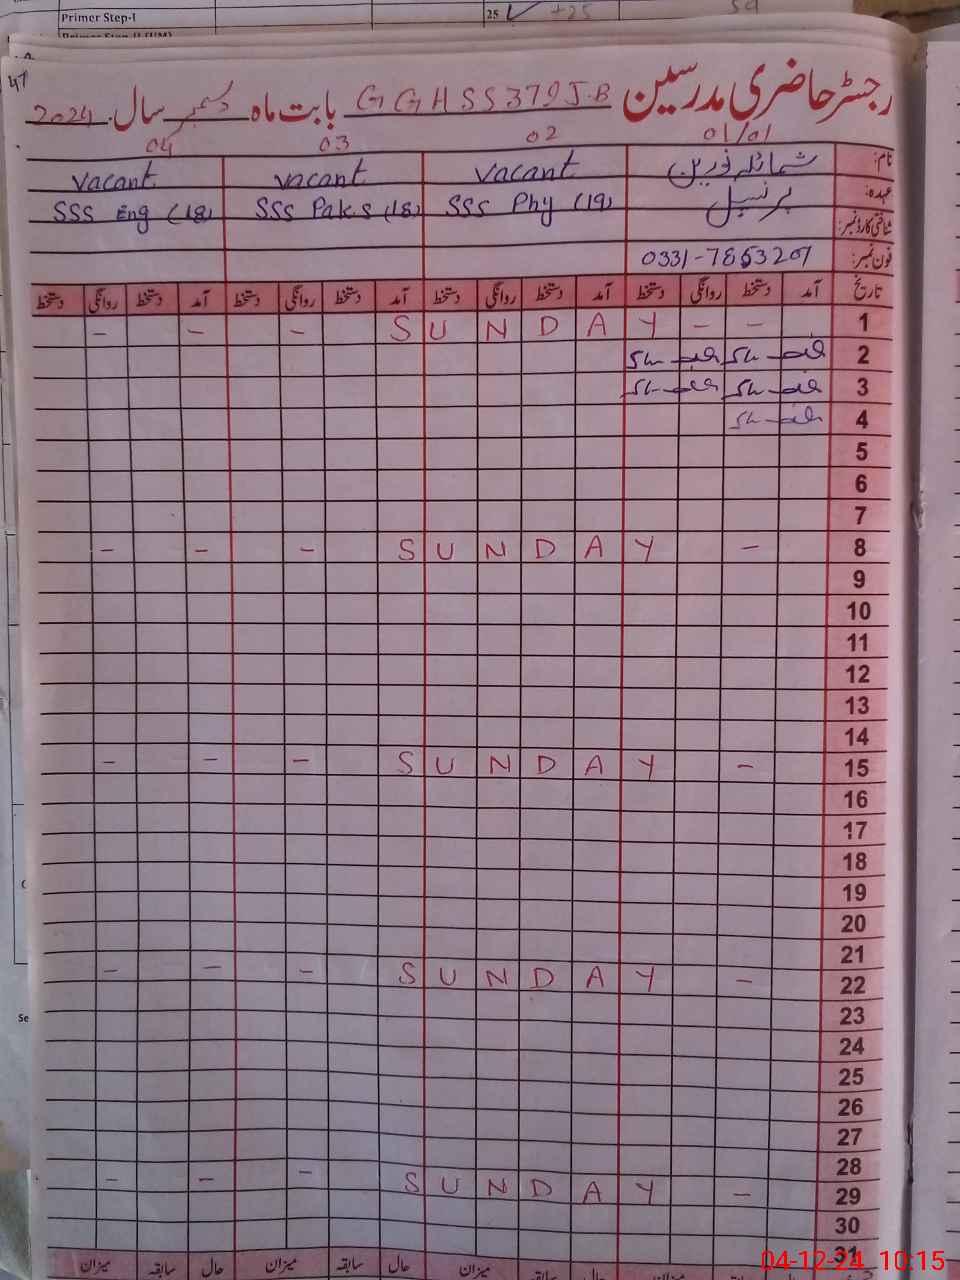 Primer Step-I 25 +25 59
47
رجسٹر حاضری مدرسین GGHSS 379 J.B بابت ماہ دسمبر سال 2024
01/01 02 03 04
نام: شمائلہ نورین vacant vacant vacant
عہدہ: پرنسپل SSS Phy (19) SSS Pak.S (18) SSS Eng (18)
شناختی کارڈ نمبر:
فون نمبر: 0331-7853207
تاریخ آمد دستخط روانگی دستخط آمد دستخط روانگی دستخط آمد دستخط روانگی دستخط آمد دستخط روانگی دستخط
1 - - - S U N D A Y - -
2
3
4
5
6
7
8 - - - S U N D A Y -
9
10
11
12
13
14
15 - - - S U N D A Y -
16
17
18
19
20
21
22 - - - S U N D A Y -
23
24
25
26
27
28
29 - - - S U N D A Y -
30
31
حال سابقہ میزان حال سابقہ میزان حال سابقہ میزان
04-12-24 10:15